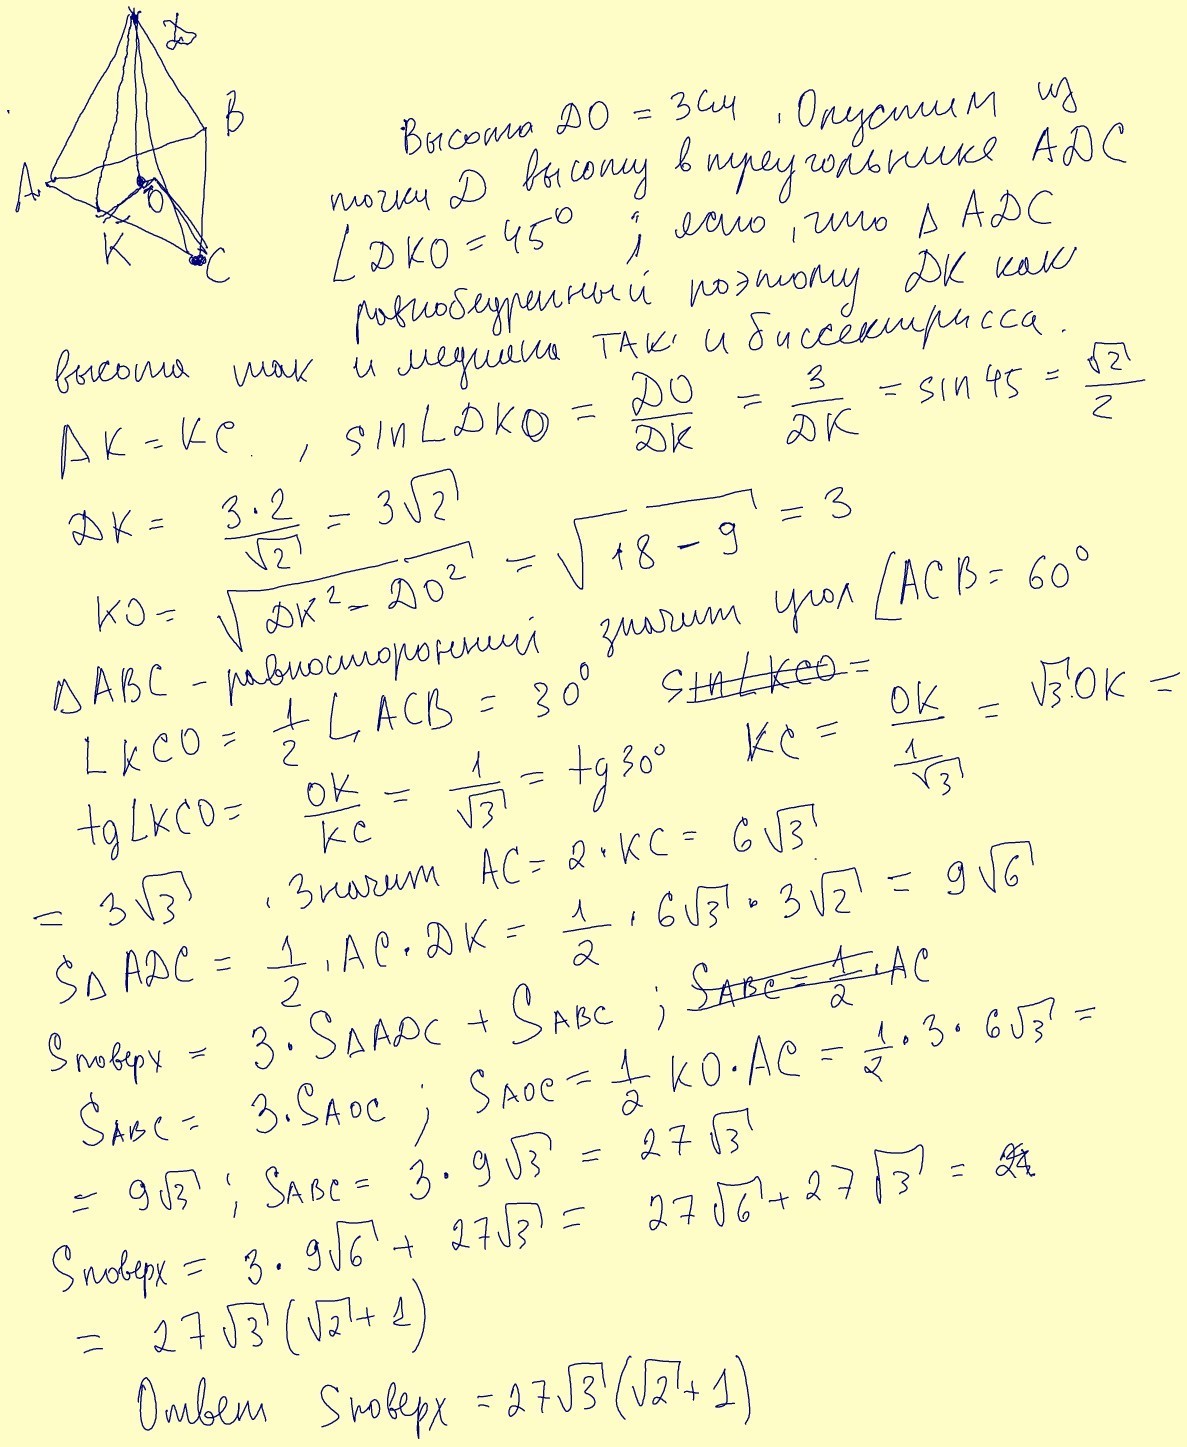 D
B
A
O
K
C
Высота DO = 3см . Опустим из
точки D высоту в треугольнике ADC
∠DKO = 45° ; ясно, что Δ ADC
равнобедренный поэтому DK как
высота так и медиана ТАК и биссектрисса.
AK = KC , sin∠DKO = DO/DK = 3/DK = sin 45 = √2/2
DK = 3·2/√2 = 3√2
KO = √(DK² - DO²) = √(18 - 9) = 3
Δ ABC - равносторонний значит угол ∠ACB = 60°
∠KCO = 1/2 ∠ACB = 30° sin∠KCO =
tg∠KCO = OK/KC = 1/√3 = tg30° KC = OK/(1/√3) = √3·OK =
= 3√3 . Значит AC = 2·KC = 6√3
SΔ ADC = 1/2 · AC · DK = 1/2 · 6√3 · 3√2 = 9√6
Sповерх = 3·SΔADC + SABC ; SABC = 1/2 · AC
SABC = 3·SAOC ; SAOC = 1/2 KO·AC = 1/2 · 3 · 6√3 =
= 9√3 ; SABC = 3 · 9√3 = 27√3
Sповерх = 3 · 9√6 + 27√3 = 27√6 + 27√3 =
= 27√3 (√2 + 1)
Ответ Sповерх = 27√3 (√2 + 1)